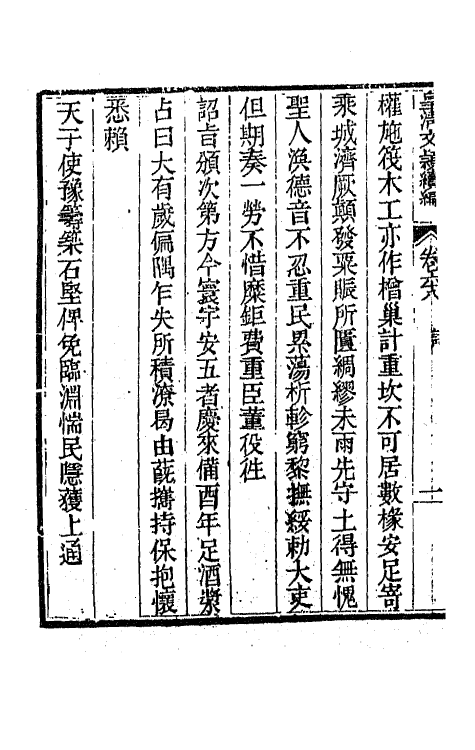 皇清文穎續編　卷六八　詩　二
權施筏木工亦作橧巢計重坎不可居數椽安足寄
乘城濟厥顛發粟賑所匱綢繆未雨先守土得無愧
聖人渙德音不忍重民累蕩析軫窮黎撫綏勅大吏
但期奏一勞不惜糜鉅費重臣董役徃
詔旨頒次第方今寰宇安五者慶來僃酉年足酒漿
占曰大有歲偏隅乍失所積潦曷由蓺攜持保抱懷
悉賴
天子使豫籌築石堅俾免臨淵惴民隱獲上通